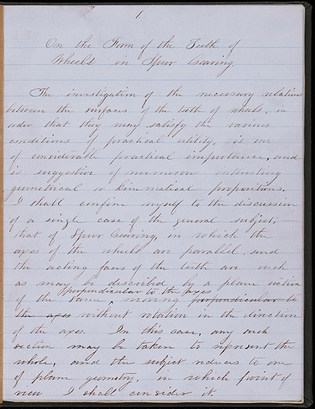 1
On the Form of the Teeth of
Wheels in Spur Gearing
The investigation of the necessary relation
between the surfaces of the teeth of wheels, in
order that they may satisfy the various
conditions of practical utility, is one
of considerable practical importance, and
is suggestive of numerous interesting
geometrical or kinematical propositions.
I shall confine myself to the discussion
of a single case of the general subject,
that of Spur Gearing, in which the
axes of the wheels are parallel, and
the acting faces of the teeth are such
as may be described by a plane section
perpendicular to the axes
of the same, moving perpendicular to
the axes without rotation in the direction
of the axes. In this case, any such
section may be taken to represent the
whole, and the subject reduces to one
of plane geometry, in which point of
view I shall consider it.